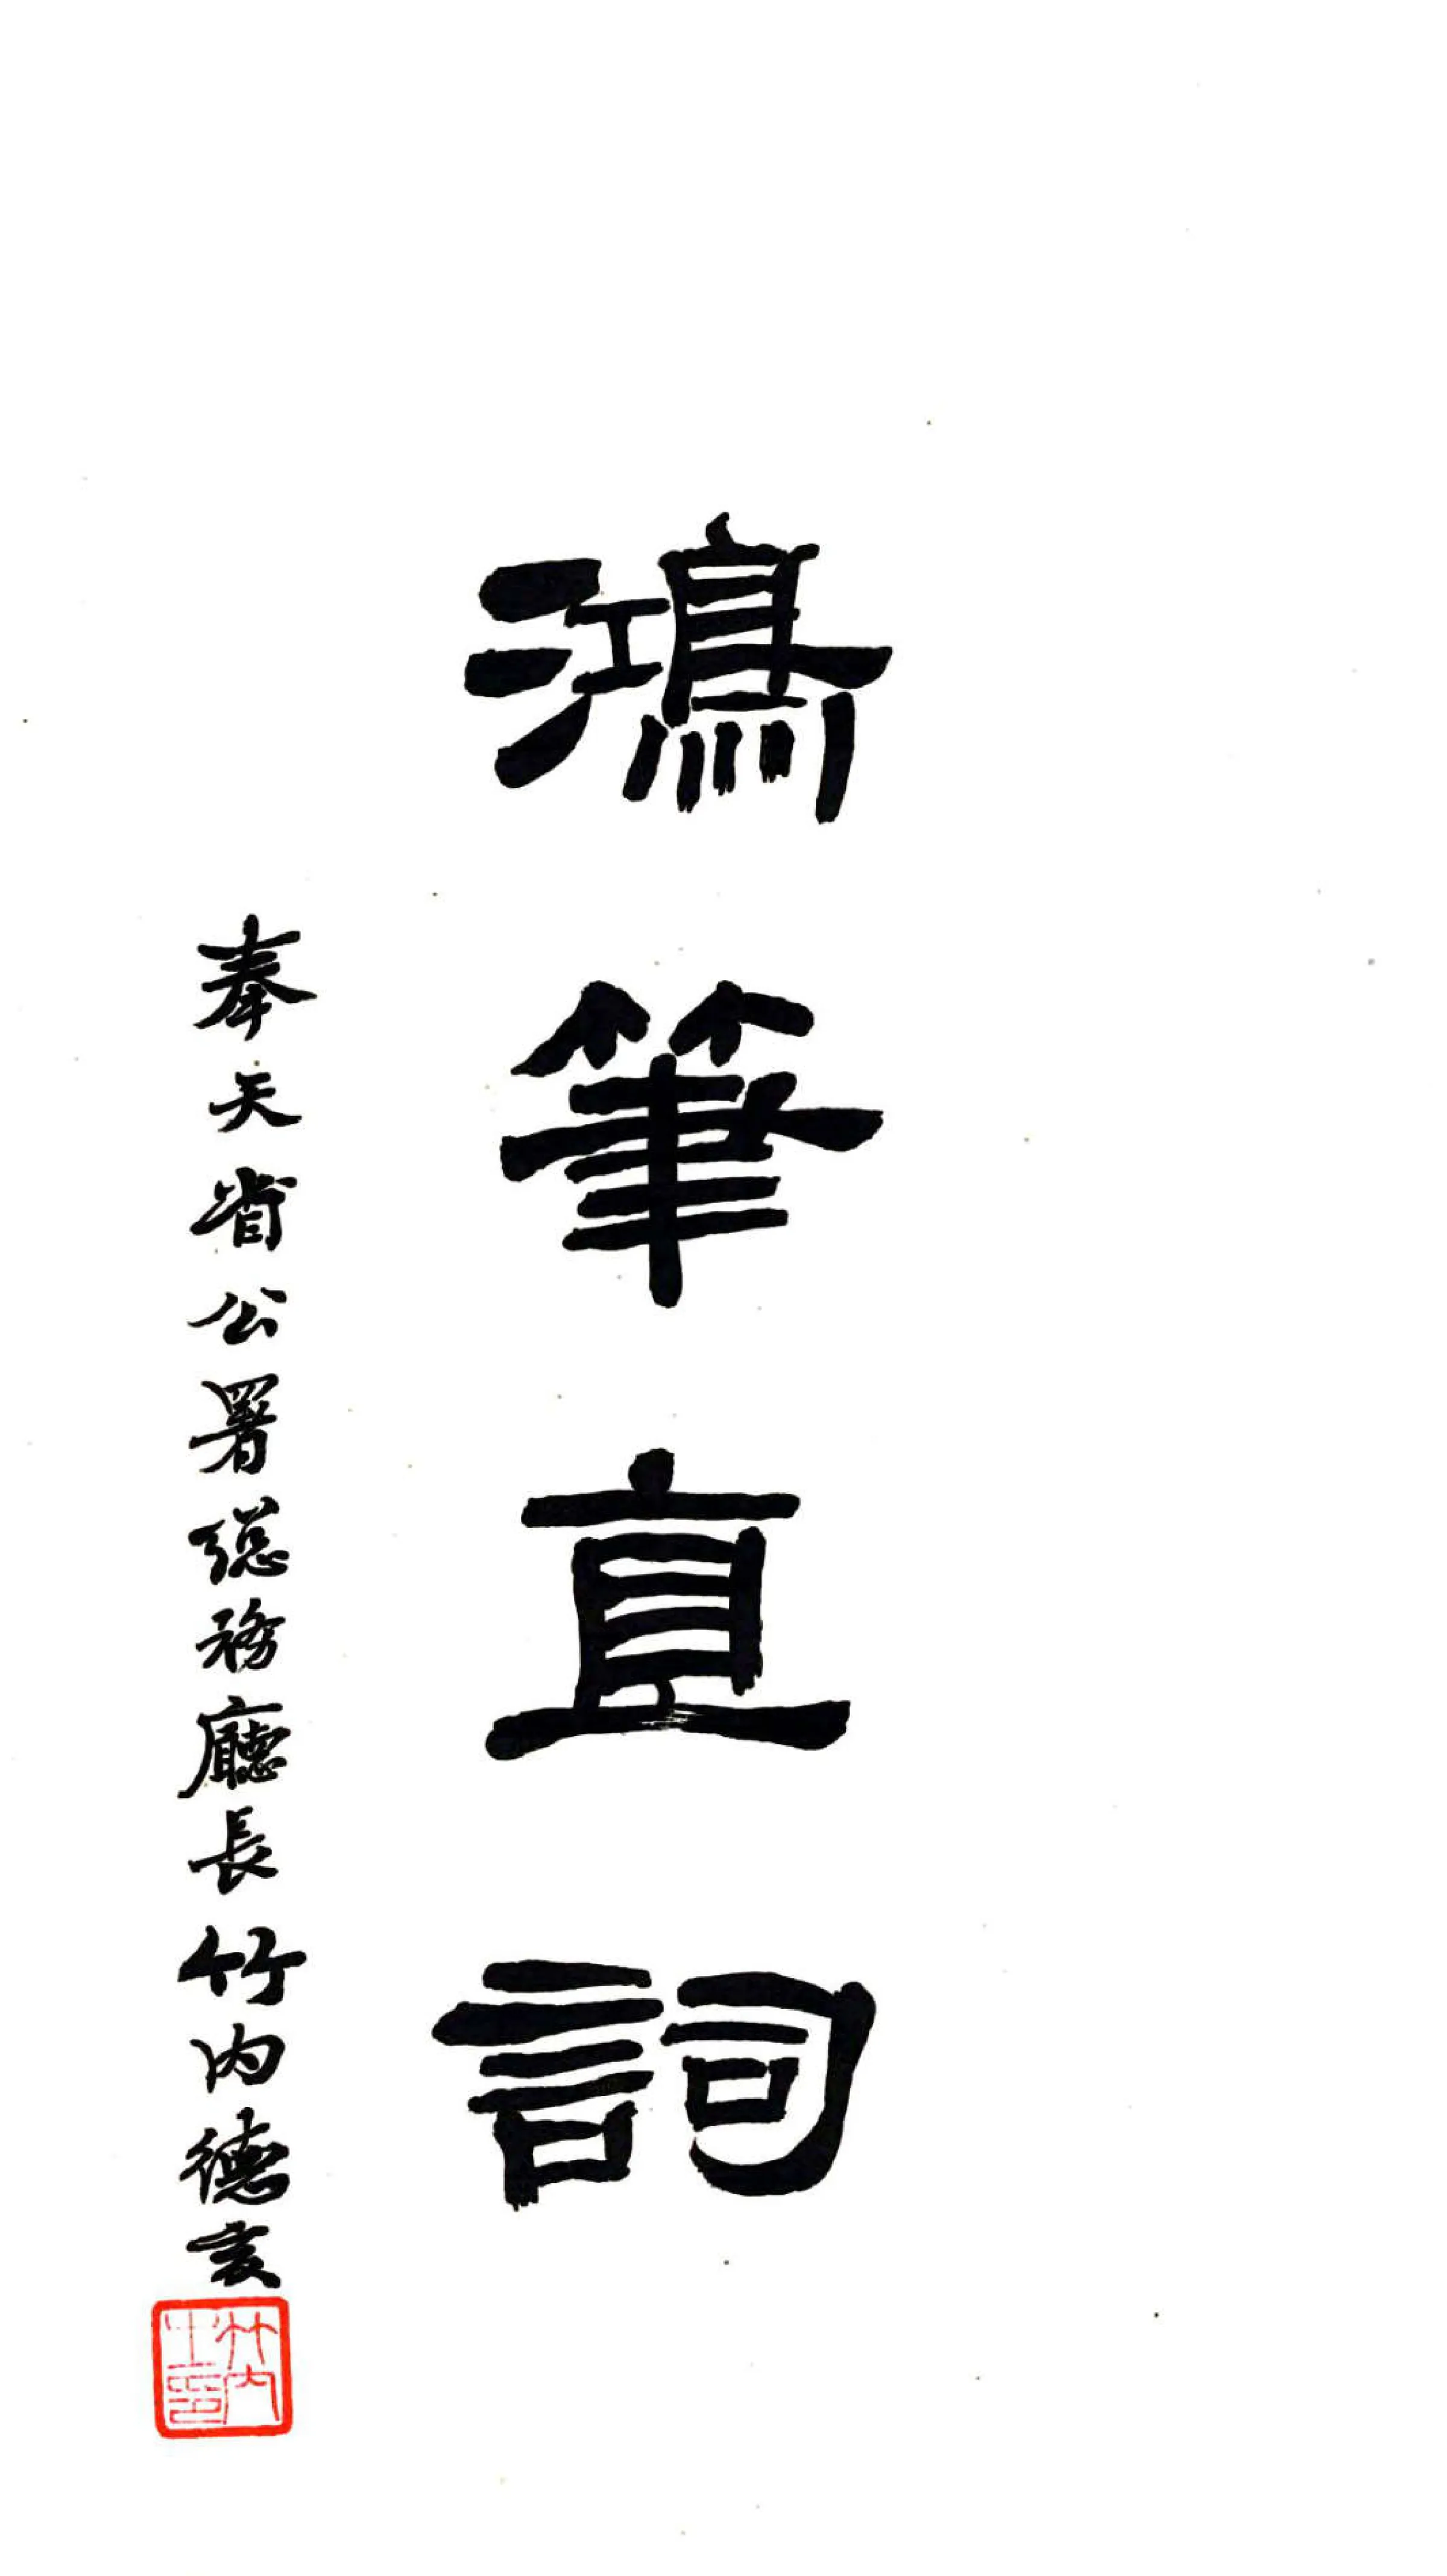 鴻筆直詞
奉天省公署総務廳長竹内德亥
竹内之印